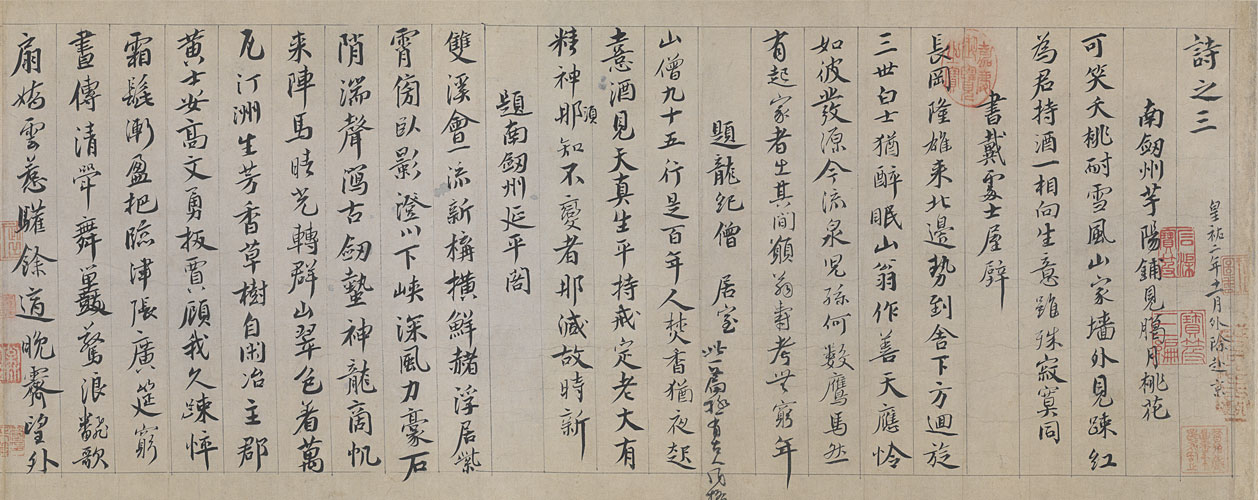 詩之三
皇祐二年十一月外除赴京
南劒州芋陽鋪見臘月桃花
可笑夭桃耐雪風山家墻外見踈紅
為君持酒一相向生意雖殊寂寞同
書戴處士屋壁
長岡隆雄来北邊勢到舍下方迴旋
三世白士猶醉眠山翁作善天應憐
如彼發源今流泉兒孫何數鷹馬然
有起家者生其間願翁壽考無窮年
題龍紀僧居室 此一篇極有古人風格
山僧九十五行是百年人焚香猶夜起
憙酒見天真生平持戒定老大有
精神須那知不變者那減故時新
題南劒州延平閣
雙溪會一流新構橫鮮赭浮居紫
霄傍臥影澄川下峽深風力豪石
陗湍聲瀉古劒蟄神龍商帆
来陣馬晴光轉群山翠色着萬
瓦汀洲生芳香草樹自閑冶主郡
黃士安高文勇扳賈顧我久踈怦
霜髭漸盈把臨津張廣筵窮
晝傳清斝舞鼓驚浪翻歌
扇嬌雲惹驩餘適晚霽望外